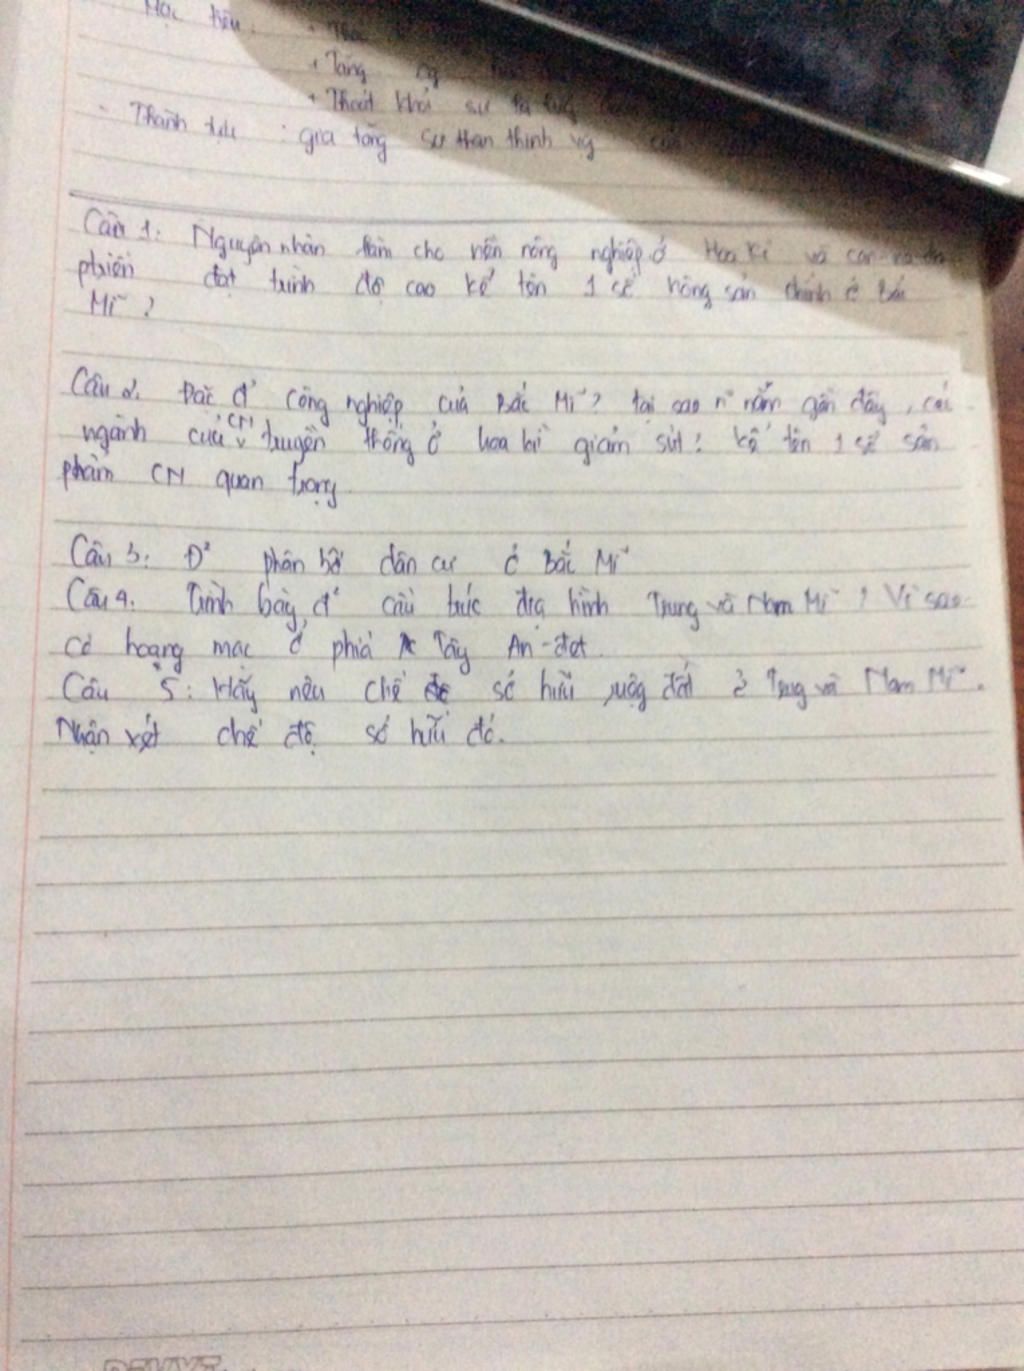 Mục tiêu:
+ Tăng
+ Thoát khỏi sự
- Thành tựu : gia tăng sự thịnh vg của
Câu 1: Nguyên nhân làm cho nền nông nghiệp ở Hoa Kì và ca-na-đa
phiển đạt trình độ cao kể tên 1 số nông sản chính ở Bắc
Mĩ ?
Câu 2. Đặc đ' công nghiệp của Bắc Mĩ ? tại sao n~ năm gần đây, các
ngành CN truyền thống ở hoa kì giảm sút ? kể tên 1 số sản
phẩm CN quan trọng
Câu 3: Đ² phân bố dân cư ở Bắc Mĩ
Câu 4. Trình bày đ² cấu trúc địa hình Trung và Nam Mĩ ? Vì sao
có hoang mạc ở phía Tây An-đet.
Câu 5: Hãy nêu chế độ sở hữu ruộng đất ở Trung và Nam Mĩ.
Nhận xét chế độ sở hữu đó.